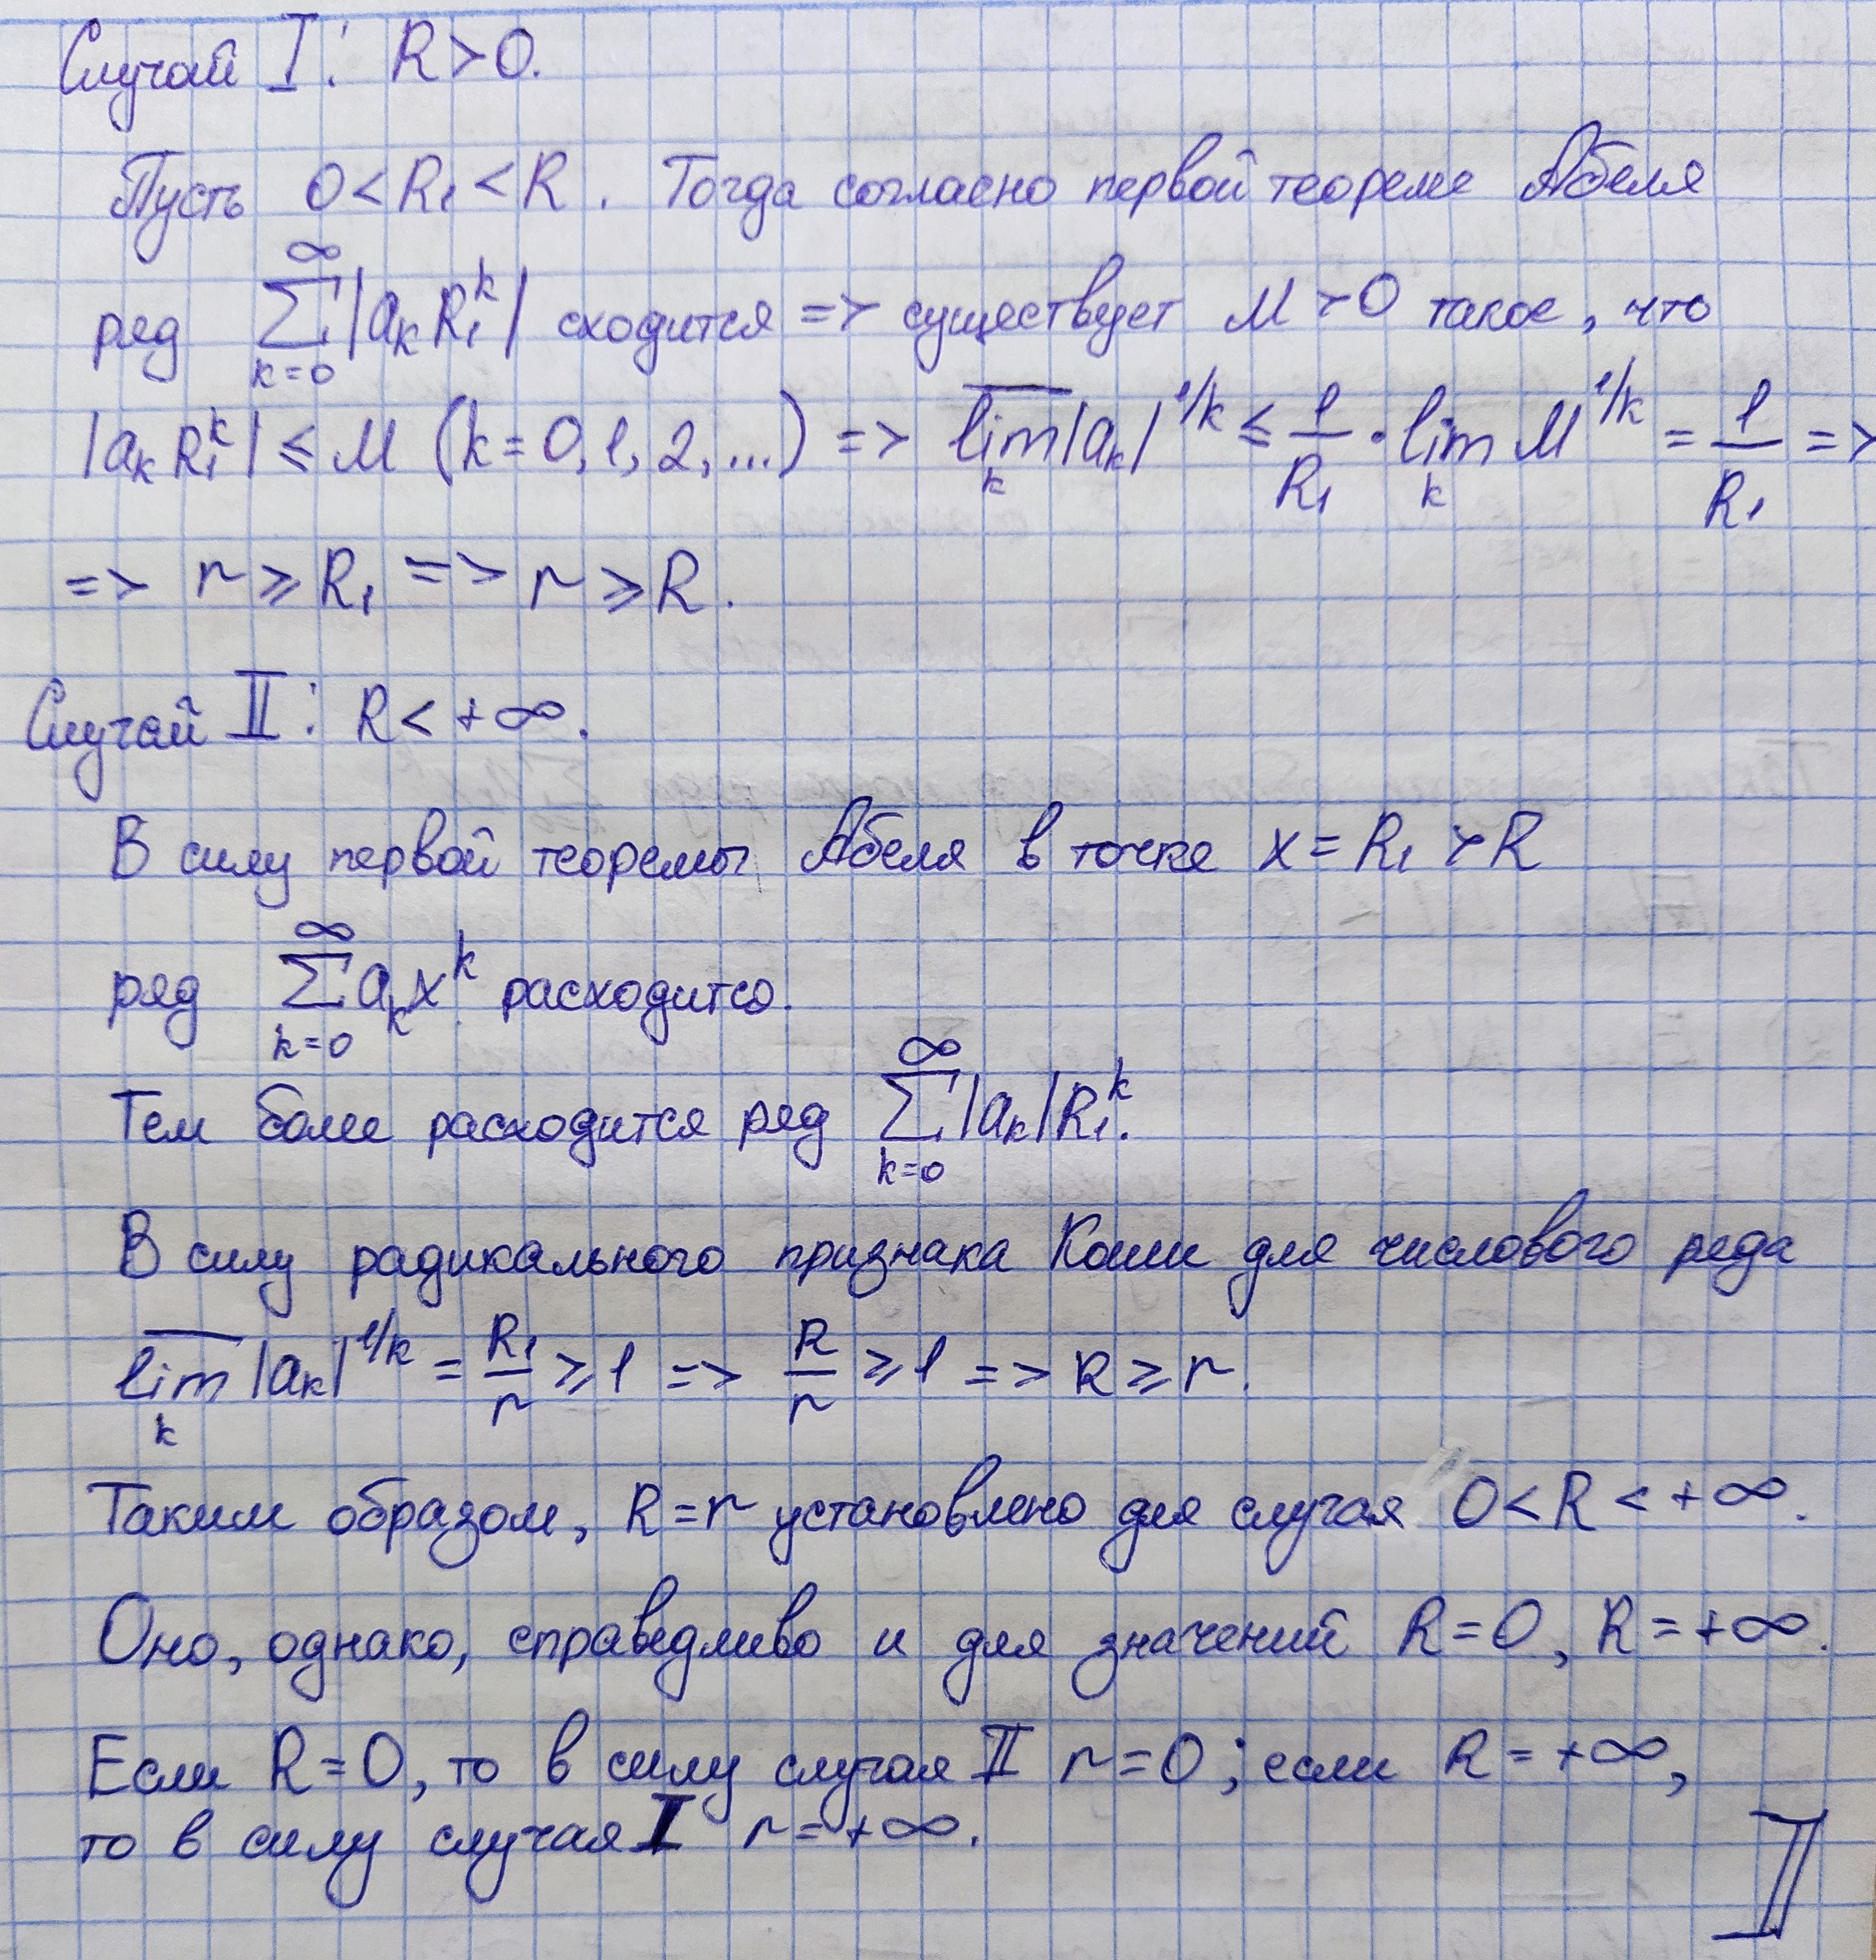 Случай I: R > 0.
Пусть 0 < R₁ < R. Тогда согласно первой теореме Абеля
ряд ∑_{k=0}^{∞} |a_k R₁^k| сходится => существует M > 0 такое, что
|a_k R₁^k| ≤ M (k = 0, 1, 2, ...) => \overline{lim}_k |a_k|^{1/k} ≤ 1/R₁ · lim_k M^{1/k} = 1/R₁ =>
=> r ≥ R₁ => r ≥ R.
Случай II: R < +∞.
В силу первой теоремы Абеля в точке x = R₁ > R
ряд ∑_{k=0}^{∞} a_k x^k расходится.
Тем более расходится ряд ∑_{k=0}^{∞} |a_k| R₁^k.
В силу радикального признака Коши для числового ряда
\overline{lim}_k |a_k|^{1/k} = R₁/r ≥ 1 => R/r ≥ 1 => R ≥ r.
Таким образом, R = r установлено для случая 0 < R < +∞.
Оно, однако, справедливо и для значений R = 0, R = +∞.
Если R = 0, то в силу случая II r = 0; если R = +∞,
то в силу случая I r = +∞.